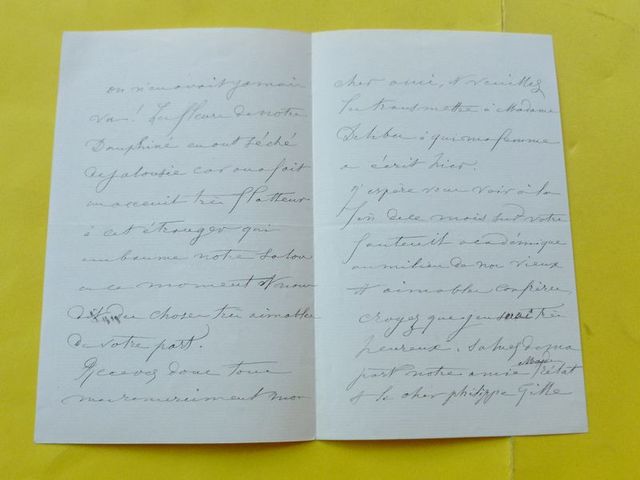 on n'en avait jamais
vu! Les fleurs de notre
Dauphiné en ont séché
de jalousie car on a fait
un accueil très flatteur
à cet étranger qui
embaume notre salon
en ce moment et nous
dit des choses très aimables
de votre part.
Recevez donc tous
mes remerciements mon
cher ami, et veuillez
les transmettre à Madame
Delibes à qui ma femme
a écrit hier.
J'espère vous voir à la
fin de ce mois sur votre
fauteuil académique
au milieu de nos vieux
et aimables confrères,
croyez que j'en serai très
heureux. Saluez de ma
part notre amie Madame
et le cher philippe Gille